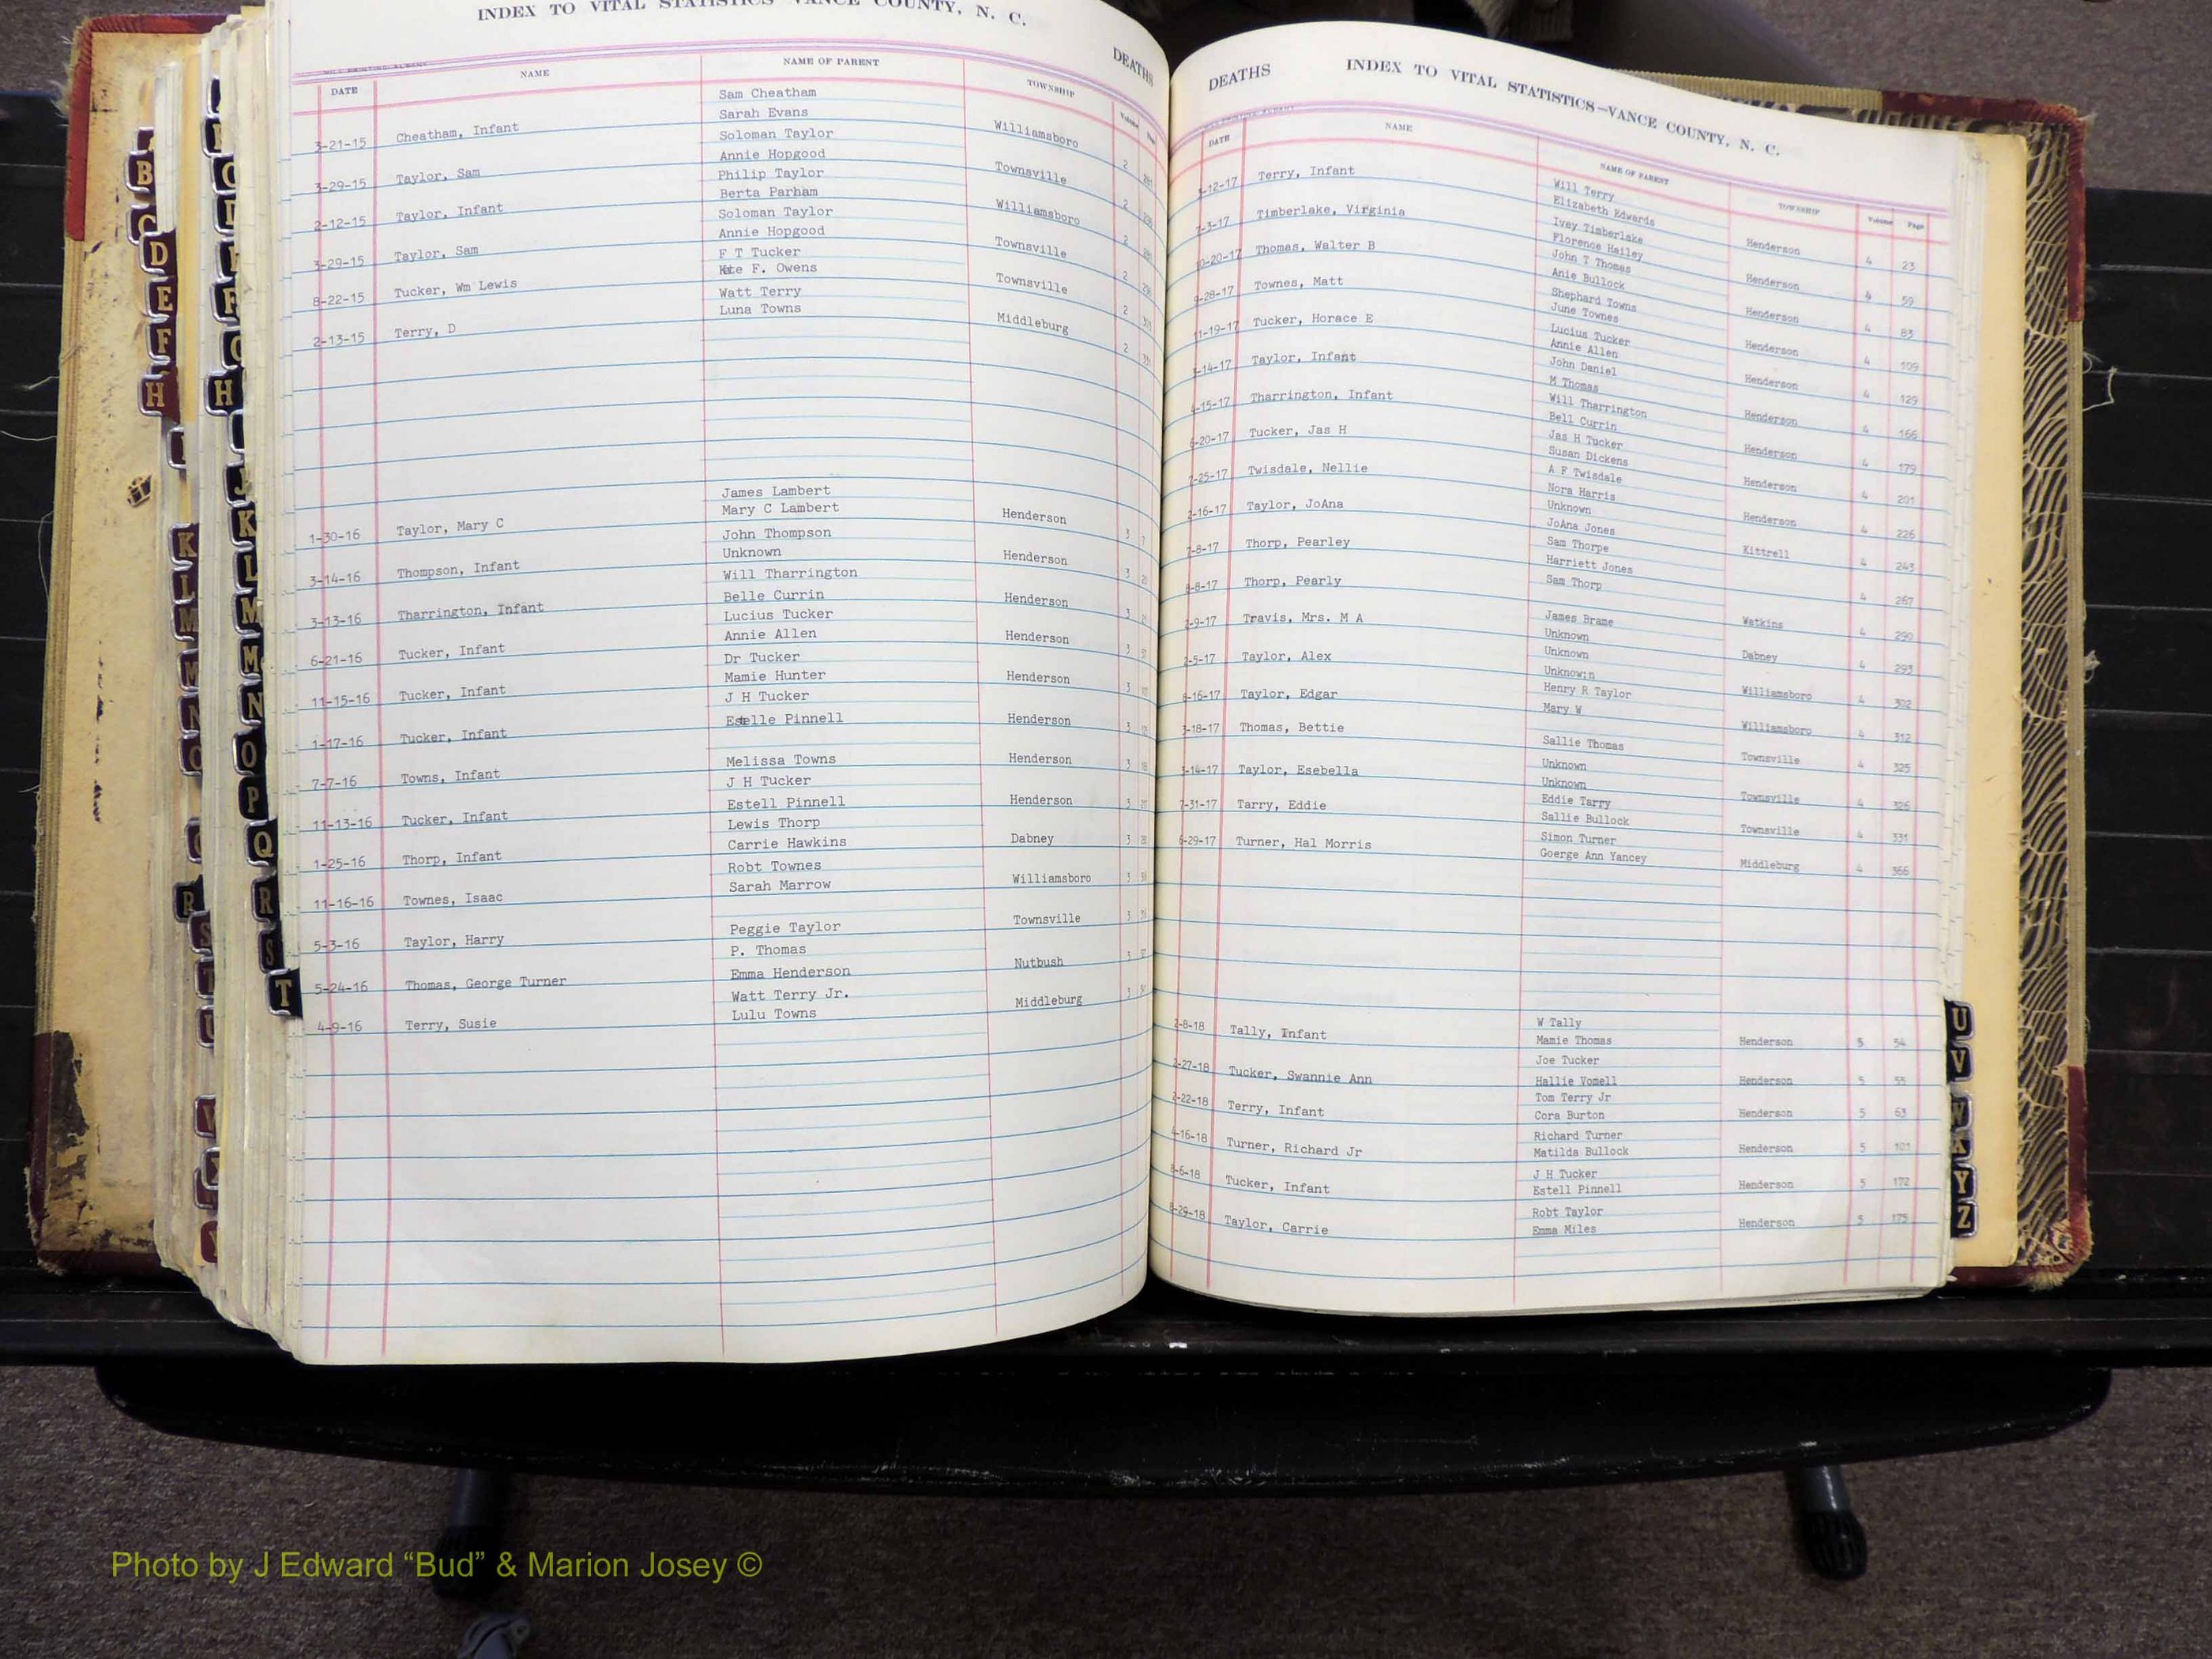 INDEX TO VITAL STATISTICS VANCE COUNTY, N. C.
DEATHS
DATE NAME NAME OF PARENT TOWNSHIP
Sam Cheatham
3-21-15 Cheatham, Infant Sarah Evans Williamsboro 2
Soloman Taylor
3-29-15 Taylor, Sam Annie Hopgood Townsville 2
Philip Taylor
2-12-15 Taylor, Infant Berta Parham Williamsboro 2
Soloman Taylor
3-29-15 Taylor, Sam Annie Hopgood Townsville 2
F T Tucker
8-22-15 Tucker, Wm Lewis F. Owens Townsville 2
Watt Terry
2-13-15 Terry, D Luna Towns Middleburg 2
James Lambert
1-30-16 Taylor, Mary C Mary C Lambert Henderson 3
John Thompson
3-14-16 Thompson, Infant Unknown Henderson 3
Will Tharrington
3-13-16 Tharrington, Infant Belle Currin Henderson 3
Lucius Tucker
6-21-16 Tucker, Infant Annie Allen Henderson 3
Dr Tucker
11-15-16 Tucker, Infant Mamie Hunter Henderson 3
J H Tucker
1-17-16 Tucker, Infant Estelle Pinnell Henderson 3
7-7-16 Towns, Infant Melissa Towns Henderson 3
J H Tucker
11-13-16 Tucker, Infant Estell Pinnell Henderson 3
Lewis Thorp
1-25-16 Thorp, Infant Carrie Hawkins Dabney 3
Robt Townes
11-16-16 Townes, Isaac Sarah Marrow Williamsboro 3
5-3-16 Taylor, Harry Peggie Taylor Townsville 3
P. Thomas
5-24-16 Thomas, George Turner Emma Henderson Nutbush 3
Watt Terry Jr.
4-9-16 Terry, Susie Lulu Towns Middleburg 3
DEATHS INDEX TO VITAL STATISTICS—VANCE COUNTY, N. C.
DATE NAME NAME OF PARENT TOWNSHIP Volume Page
Will Terry
-12-17 Terry, Infant Elizabeth Edwards Henderson 4 23
Ivey Timberlake
-3-17 Timberlake, Virginia Florence Hailey Henderson 4 59
John T Thomas
10-20-17 Thomas, Walter B Anie Bullock Henderson 4 83
Shephard Towns
9-28-17 Townes, Matt June Townes Henderson 4 109
Lucius Tucker
11-19-17 Tucker, Horace E Annie Allen Henderson 4 129
John Daniel
-14-17 Taylor, Infant M Thomas Henderson 4 166
Will Tharrington
4-15-17 Tharrington, Infant Bell Currin Henderson 4 179
Jas H Tucker
6-20-17 Tucker, Jas H Susan Dickens Henderson 4 201
A F Twisdale
-25-17 Twisdale, Nellie Nora Harris Henderson 4 226
Unknown
-16-17 Taylor, JoAna JoAna Jones Kittrell 4 243
Sam Thorpe
-8-17 Thorp, Pearley Harriett Jones 4 267
8-8-17 Thorp, Pearly Sam Thorp Watkins 4 290
James Brame
-9-17 Travis, Mrs. M A Unknown Dabney 4 293
Unknown
-5-17 Taylor, Alex Unknow;n Williamsboro 4 302
Henry R Taylor
8-16-17 Taylor, Edgar Mary W Williamsboro 4 312
3-18-17 Thomas, Bettie Sallie Thomas Townsville 4 325
Unknown
3-14-17 Taylor, Esebella Unknown Townsville 4 326
Eddie Tarry
7-31-17 Tarry, Eddie Sallie Bullock Townsville 4 331
Simon Turner
6-29-17 Turner, Hal Morris Goerge Ann Yancey Middleburg 4 366
W Tally
2-8-18 Tally, Infant Mamie Thomas Henderson 5 54
Joe Tucker
2-27-18 Tucker, Swannie Ann Hallie Vomell Henderson 5 55
Tom Terry Jr
2-22-18 Terry, Infant Cora Burton Henderson 5 63
Richard Turner
4-16-18 Turner, Richard Jr Matilda Bullock Henderson 5 101
J H Tucker
8-6-18 Tucker, Infant Estell Pinnell Henderson 5 172
Robt Taylor
8-29-18 Taylor, Carrie Emma Miles Henderson 5 175
B
C
D
E
F
H
K
L
M
N
O
P
Q
R
S
T
U
V
Y
Z
Photo by J Edward “Bud” & Marion Josey ©